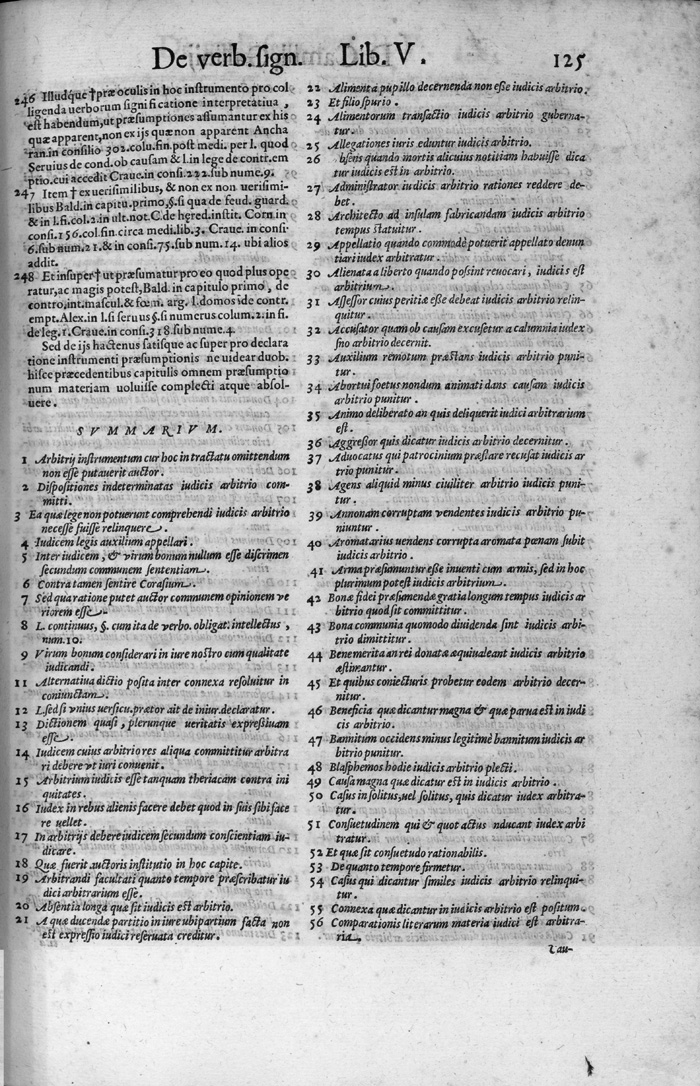 De verb. sign. Lib. V. 125
246 Illudque † præ oculis in hoc instrumento pro col
ligenda uerborum significatione interpretatiua,
est habendum, ut præsumptiones assumantur ex his
quæ apparent, non ex ijs quæ non apparent Ancha
ran. in consilio 302. colu. fin. post medi. per l. quod
Seruius de cond. ob causam & l. in lege de contr. em
ptio. cui accedit Craue. in consi. 222. sub nume. 9.
247 Item † ex uerisimilibus, & non ex non uerisimi-
libus Bald. in capitu. primo, §. si qua de feud. guard.
& in l. fi. col. 2. in ult. not. C. de hered. instit. Corn. in
consi. 156. col. fin. circa medi. lib. 3. Craue. in consi
6. sub num. 21. & in consi. 75. sub num. 14. ubi alios
addit.
248 Et insuper † ut præsumatur pro eo quod plus ope
ratur, ac magis potest, Bald. in capitulo primo, de
contro, int. mascul. & fœm. arg. l. domos ide contr.
empt. Alex. in l. si seruus §. si numerus colum. 2. in fi.
de leg. 1. Craue. in consi. 318. sub nume. 4.
Sed de ijs hactenus satisque ac super pro declara
tione instrumenti præsumptionis ne uidear duob.
hisce præcedentibus capitulis omnem præsumptio
num materiam uoluisse complecti atque absol-
uere.
SVMMARIVM.
1 Arbitrij instrumentum cur hoc in tractatu omittendum
non esse putauerit auctor.
2 Dispositiones indeterminatas iudicis arbitrio com-
mitti.
3 Ea quæ lege non potuerunt comprehendi iudicis arbitrio
necesse fuisse relinquere.
4 Iudicem legis auxilium appellari.
5 Inter iudicem, & virum bonum nullum esse discrimen
secundum communem sententiam.
6 Contra tamen sentire Corasium.
7 Sed qua ratione putet auctor communem opinionem ve
riorem esse.
8 L. continuus, §. cum ita de verbo. obligat. intellectus,
num. 10.
9 Virum bonum considerari in iure nostro cum qualitate
iudicandi.
11 Alternatiua dictio posita inter connexa resoluitur in
coniunctam.
12 L. sed si vnius uersicu. prætor ait de iniur. declaratur.
13 Dictionem quasi, plerunque ueritatis expressiuam
esse.
14 Iudicem cuius arbitrio res aliqua committitur arbitra
ri debere vt iuri conuenit.
15 Arbitrium iudicis esse tanquam theriacam contra ini
quitates.
16 Iudex in rebus alienis facere debet quod in suis sibi face
re uellet.
17 In arbitrijs debere iudicem secundum conscientiam iu-
dicare.
18 Quæ fuerit auctoris institutio in hoc capite.
19 Arbitrandi facultati quanto tempore præscribatur iu
dici arbitrarium esse.
20 Absentia longa quæ sit iudicis est arbitrio.
21 A qua ducenda partitio in iure ubi partium facta non
est expressio iudici reseruata creditur.
22 Alimenta pupillo decernenda non esse iudicis arbitrio.
23 Et filio spurio.
24 Alimentorum transactio iudicis arbitrio guberna-
tur.
25 Allegationes iuris eduntur iudicis arbitrio.
26 bsens quando mortis alicuius notitiam habuisse dica
tur iudicis est in arbitrio.
27 Administrator iudicis arbitrio rationes reddere de-
bet.
28 Architecto ad insulam fabricandam iudicis arbitrio
tempus statuitur.
29 Appellatio quando commodè potuerit appellato denun
tiari iudex arbitratur.
30 Alienata a liberto quando possint reuocari, iudicis est
arbitrium.
31 Assessor cuius peritiæ esse debeat iudicis arbitrio relin-
quitur.
32 Accusator quam ob causam excusetur a calumnia iudex
suo arbitrio decernit.
33 Auxilium remotum præstans iudicis arbitrio puni-
tur.
34 Abortui foetus nondum animati dans causam iudicis
arbitrio punitur.
35 Animo deliberato an quis deliquerit iudici arbitrarium
est.
36 Aggressor quis dicatur iudicis arbitrio decernitur.
37 Aduocatus qui patrocinium præstare recusat iudicis ar
trio punitur.
38 Agens aliquid minus ciuiliter arbitrio iudicis puni-
tur.
39 Annonam corruptam vendentes iudicis arbitrio pu-
niuntur.
40 Aromatarius uendens corrupta aromata pœnam subit
iudicis arbitrio.
41 Arma præsumuntur esse inuenti cum armis, sed in hoc
plurimum potest iudicis arbitrium.
42 Bonæ fidei præsumendæ gratia longum tempus iudicis ar
bitrio quod sit committitur.
43 Bona communia quomodo diuidenda sint iudicis arbi-
trio dimittitur.
44 Benemerita an rei donatæ æquiualeant iudicis arbitrio
æstimantur.
45 Et quibus coniecturis probetur eodem arbitrio decer-
nitur.
46 Beneficia quæ dicantur magna & quæ parua est in iudi
cis arbitrio.
47 Bannitum occidens minus legitimè bannitum iudicis ar
bitrio punitur.
48 Blasphemos hodie iudicis arbitrio plecti.
49 Causa magna quæ dicatur est in iudicis arbitrio.
50 Casus insolitus, uel solitus, quis dicatur iudex arbitra-
tur.
51 Consuetudinem qui & quot actus nducant iudex arbi
tratur.
52 Et quæ sit consuetudo rationabilis.
53 De quanto tempore firmetur.
54 Casus qui dicantur similes iudicis arbitrio relinqui-
tur.
55 Connexa quæ dicantur in iudicis arbitrio est positum.
56 Comparationis literarum materia iudici est arbitra-
ria.
Cau-